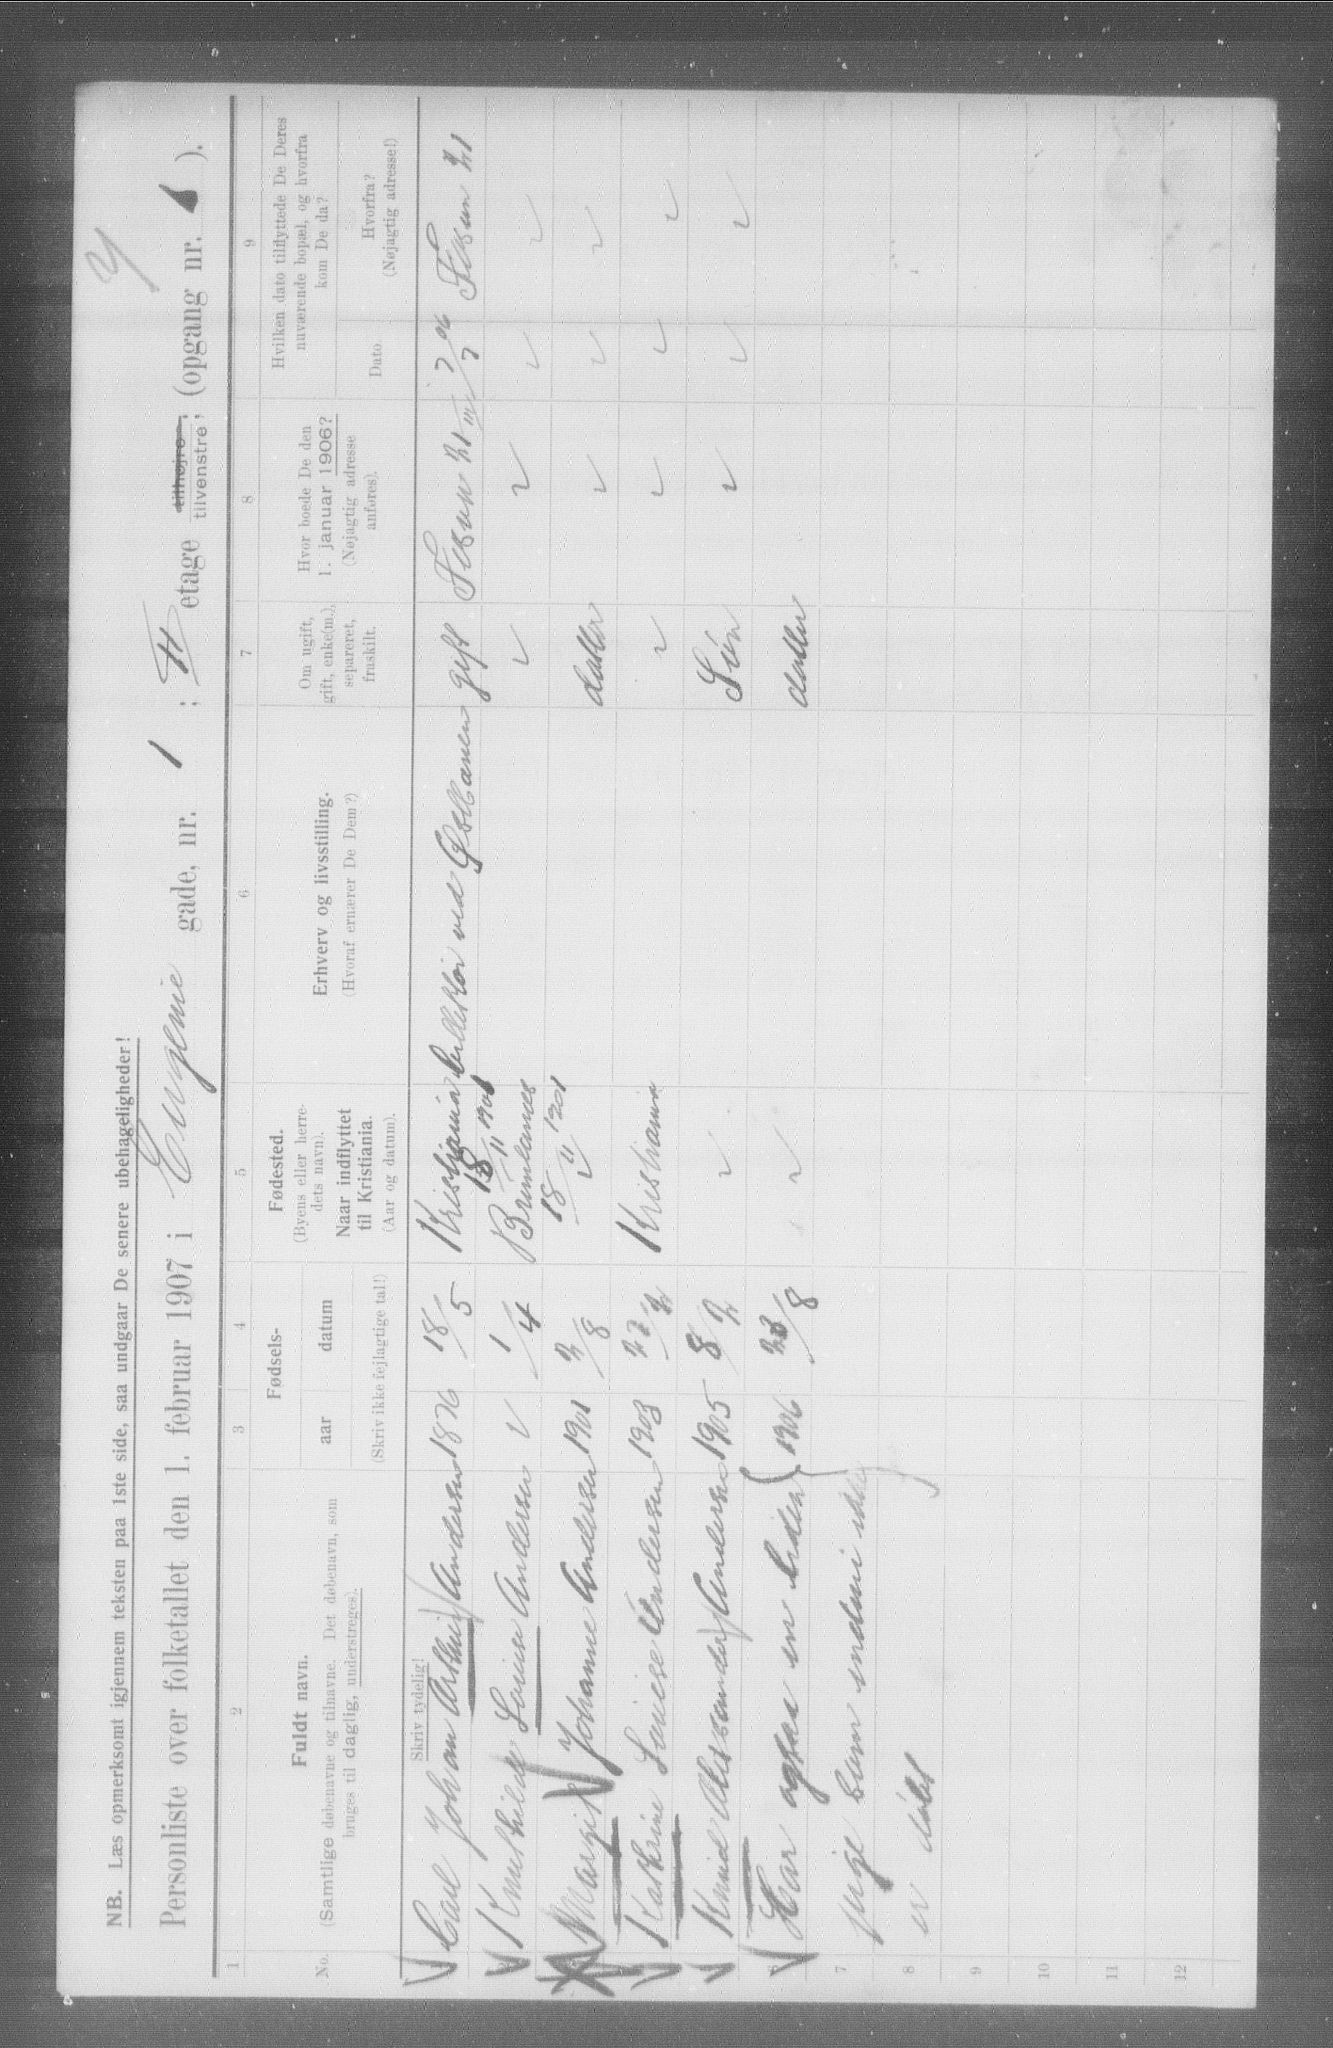 NB. Læs opmerksomt igjennem teksten paa 1ste side, saa undgaar De senere ubehageligheder!
Personliste over folketallet den 1. februar 1907 i Eugenie gade, nr. 1; II etage tilhøjre, tilvenstre; (opgang nr. ).
1 2 3 4 5 6 7 8 9
No.
Fuldt navn.
(Samtlige døbenavne og tilnavne. Det døbenavn, som
bruges til daglig, understreges).
Fødsels-
aar datum
(Skriv ikke fejlagtige tal!)
Fødested.
(Byens eller herre-
dets navn).
Naar indflyttet
til Kristiania.
(Aar og datum).
Erhverv og livsstilling.
(Hvoraf ernærer De Dem?)
Om ugift,
gift, enke(m.),
separeret,
fraskilt.
Hvor boede De den
1. januar 1906?
(Nøjagtig adresse
anføres).
Hvilken dato tilflyttede De Deres
nuværende bopæl, og hvorfra
kom De da?
Dato
Hvorfra?
(Nøjagtig adresse!)
Skriv tydelig!
Carl Johan Arthur Andersen 1876 18/5 Kristiania ved gift
18/11 1901
Louise Andersen 1/4 Brunlanes
18/11 1901
Margit Johanne Andersen 1901 2/8 datter
Kathrine Louise Andersen 1903 Kristiania
Knud Alexander Andersen 1905 8/2 Søn
Har en liden 1906 23/8 datter
pige
7
8
9
10
11
12